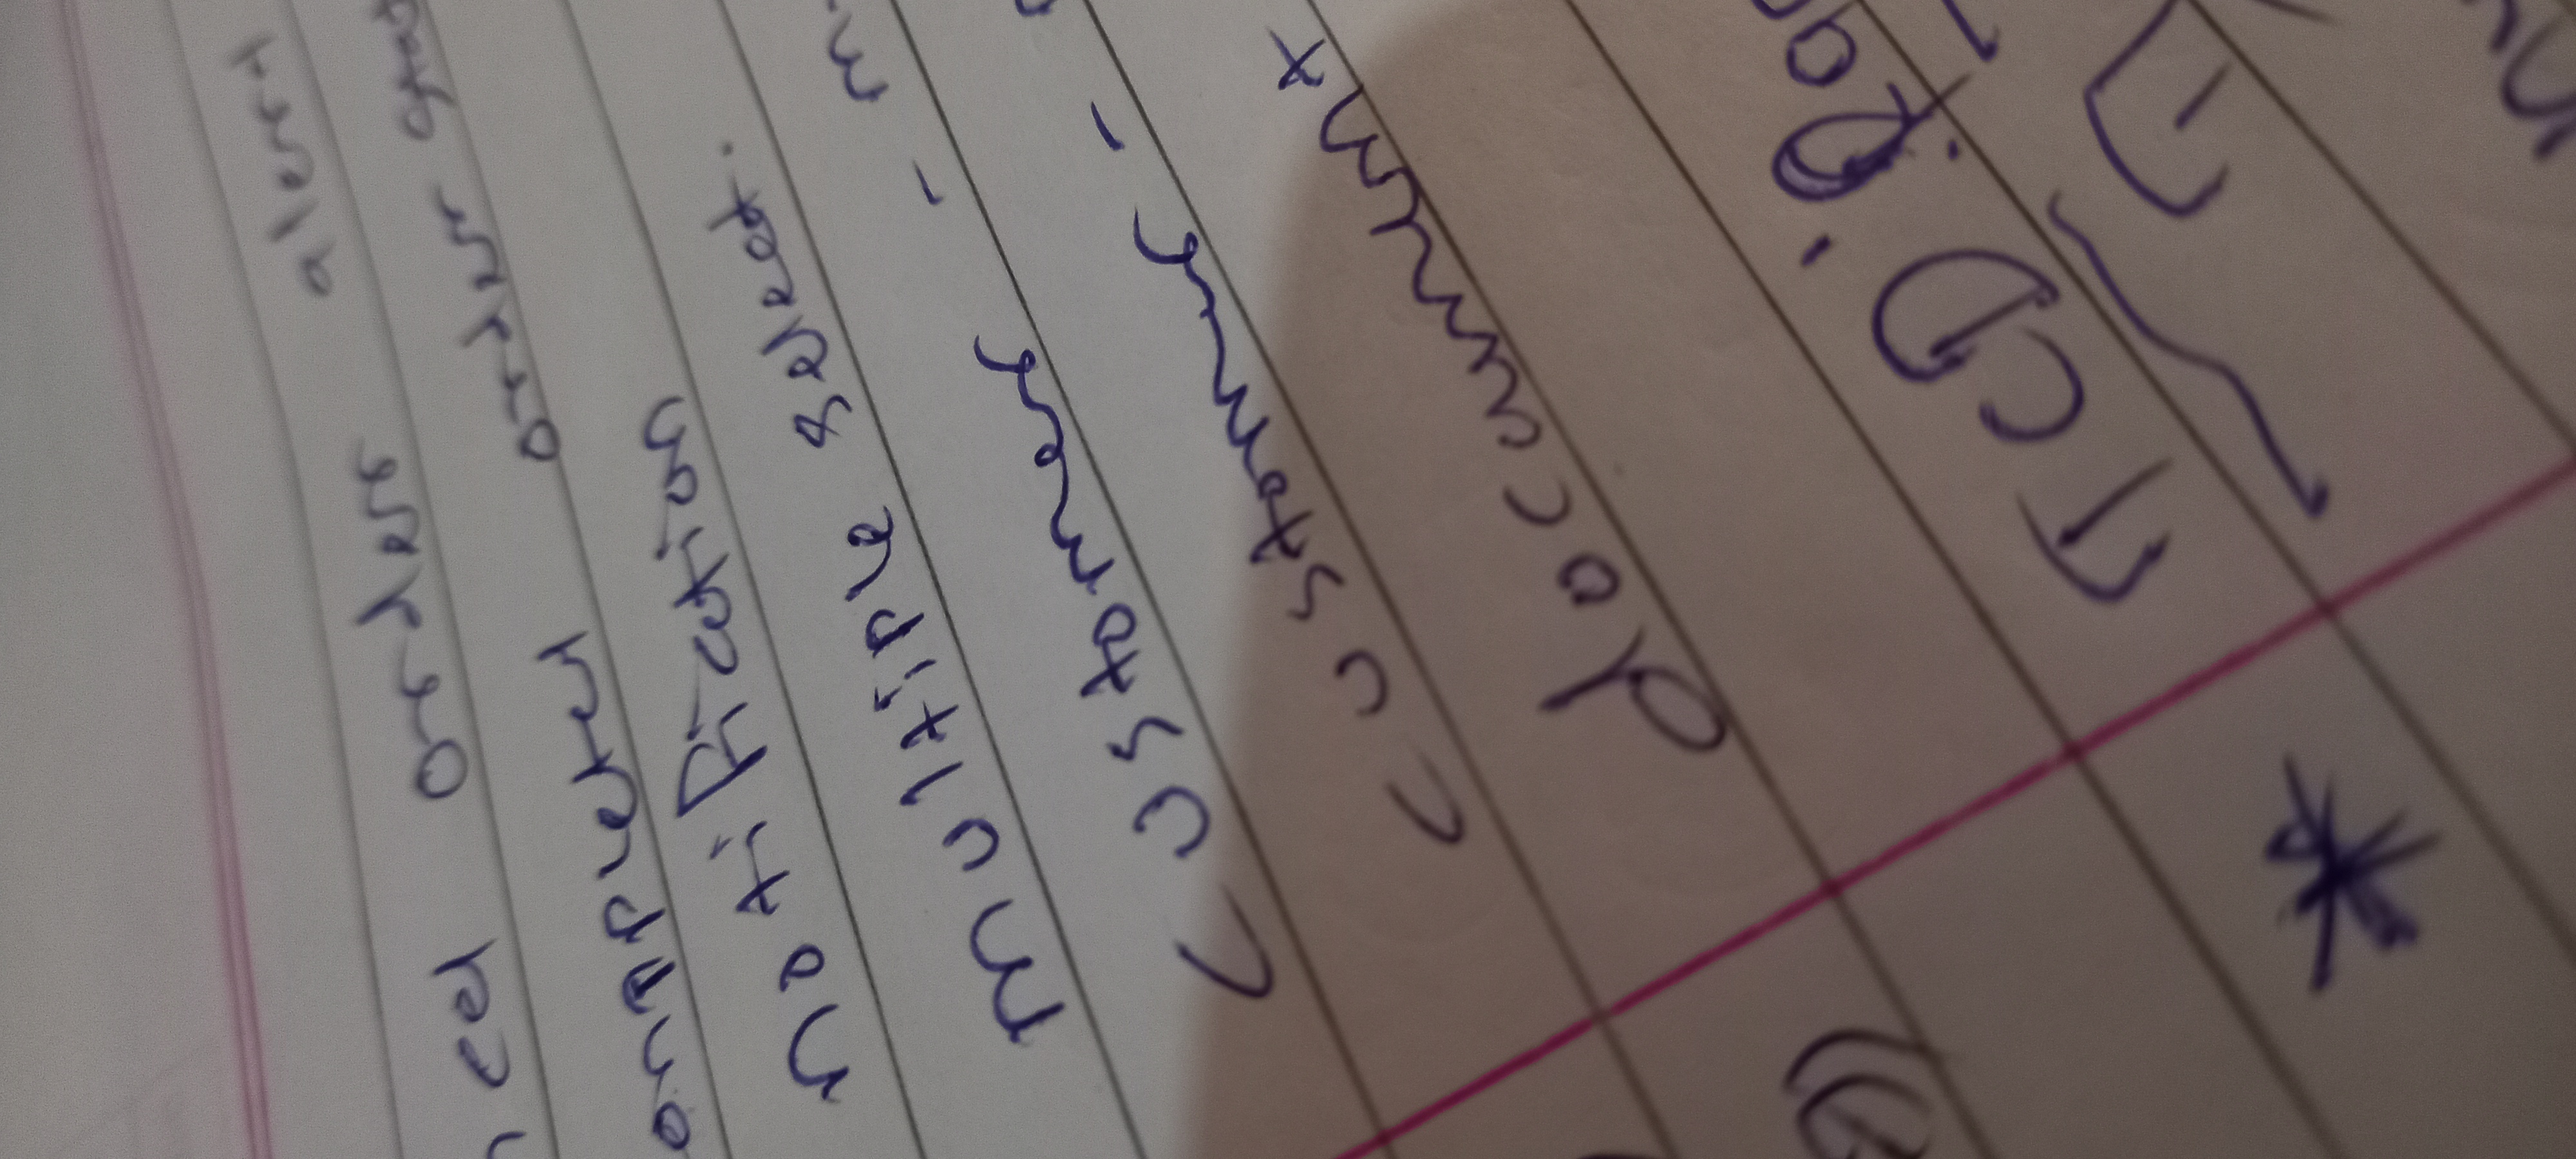 ncel order alert
ompleted order stat
notification
multiple select.
customer - m
customer -
document
TCD
*